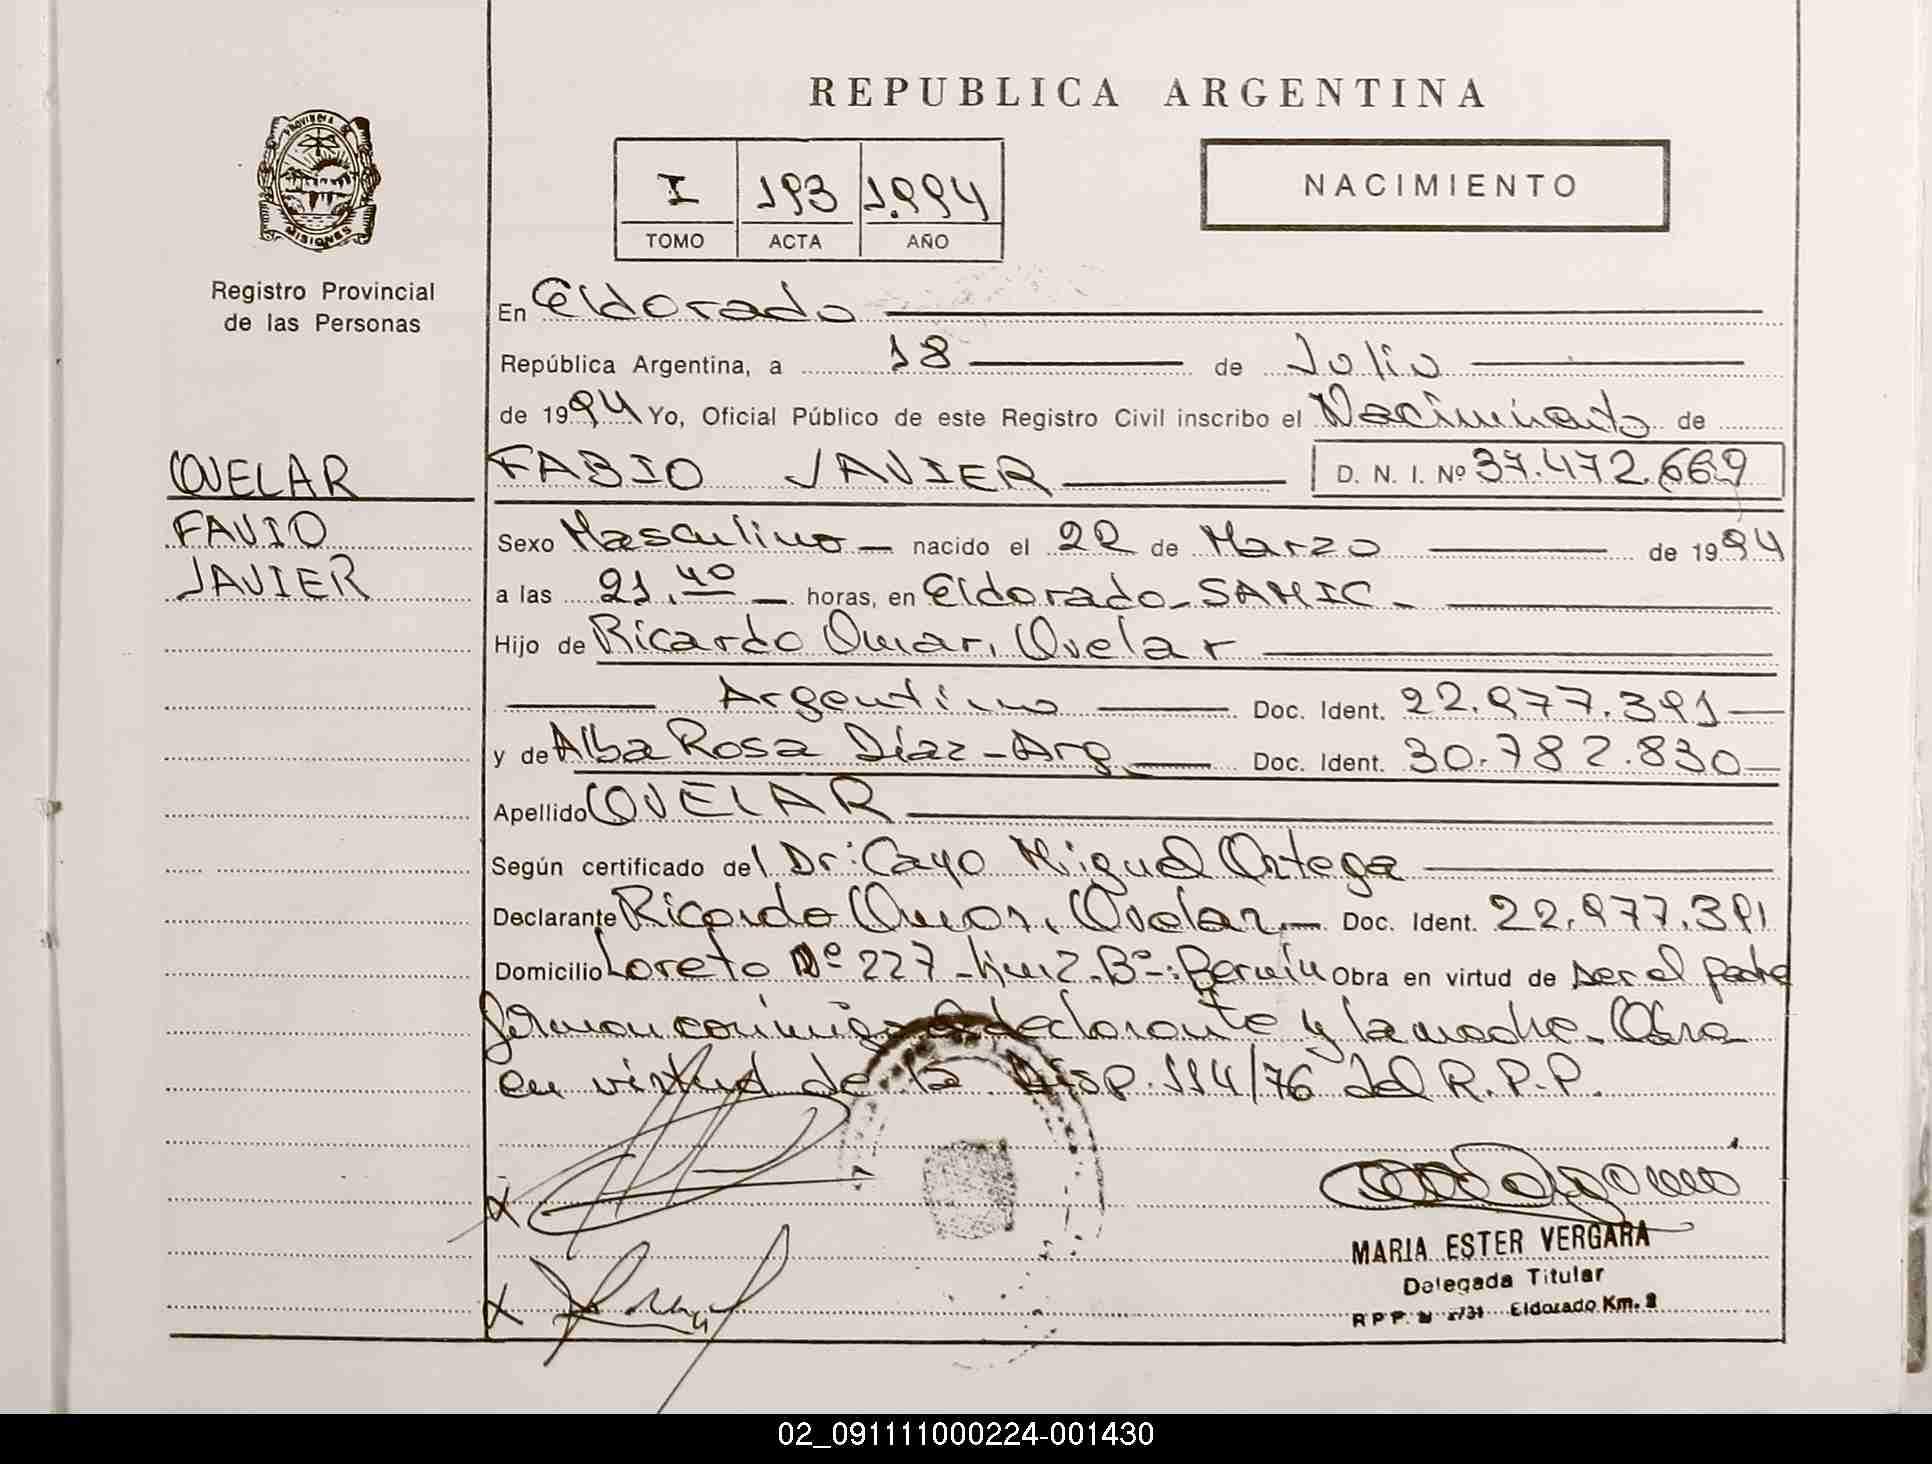 REPUBLICA ARGENTINA
PROVINCIA DE
MISIONES
Registro Provincial
de las Personas
I 193 1.994
TOMO ACTA AÑO
NACIMIENTO
En Eldorado
República Argentina, a 18 de Julio
de 1994 Yo, Oficial Público de este Registro Civil inscribo el Nacimiento de
OVELAR
FAVIO
JAVIER
FABIO JAVIER D. N. I. Nº 37.472.669
Sexo Masculino nacido el 22 de Marzo de 1994
a las 21.40 horas, en Eldorado - SAMIC -
Hijo de Ricardo Omar, Ovelar
Argentino Doc. Ident. 22.977.391
y de Alba Rosa Díaz - Arg. Doc. Ident. 30.782.830
Apellido OVELAR
Según certificado del Dr: Cayo Miguel Ortega
Declarante Ricardo Omar, Ovelar Doc. Ident. 22.977.391
Domicilio Loreto Nº 227 - km 2. Bº: Obra en virtud de ser el padre
firman conmigo el declarante y la madre. Obra
en virtud de la Disp. 114/76 del R.P.P.
X
X
MARIA ESTER VERGARA
Delegada Titular
R P P. Eldorado Km. 2
02_091111000224-001430